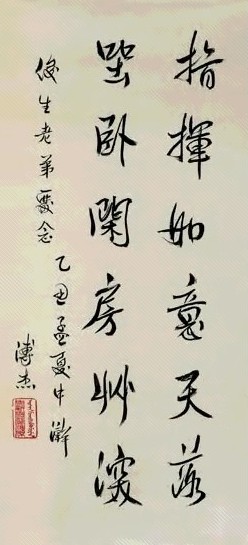 指揮如意天落
坐臥閑房艸深
俊生老弟念
乙丑孟夏中澣
溥杰